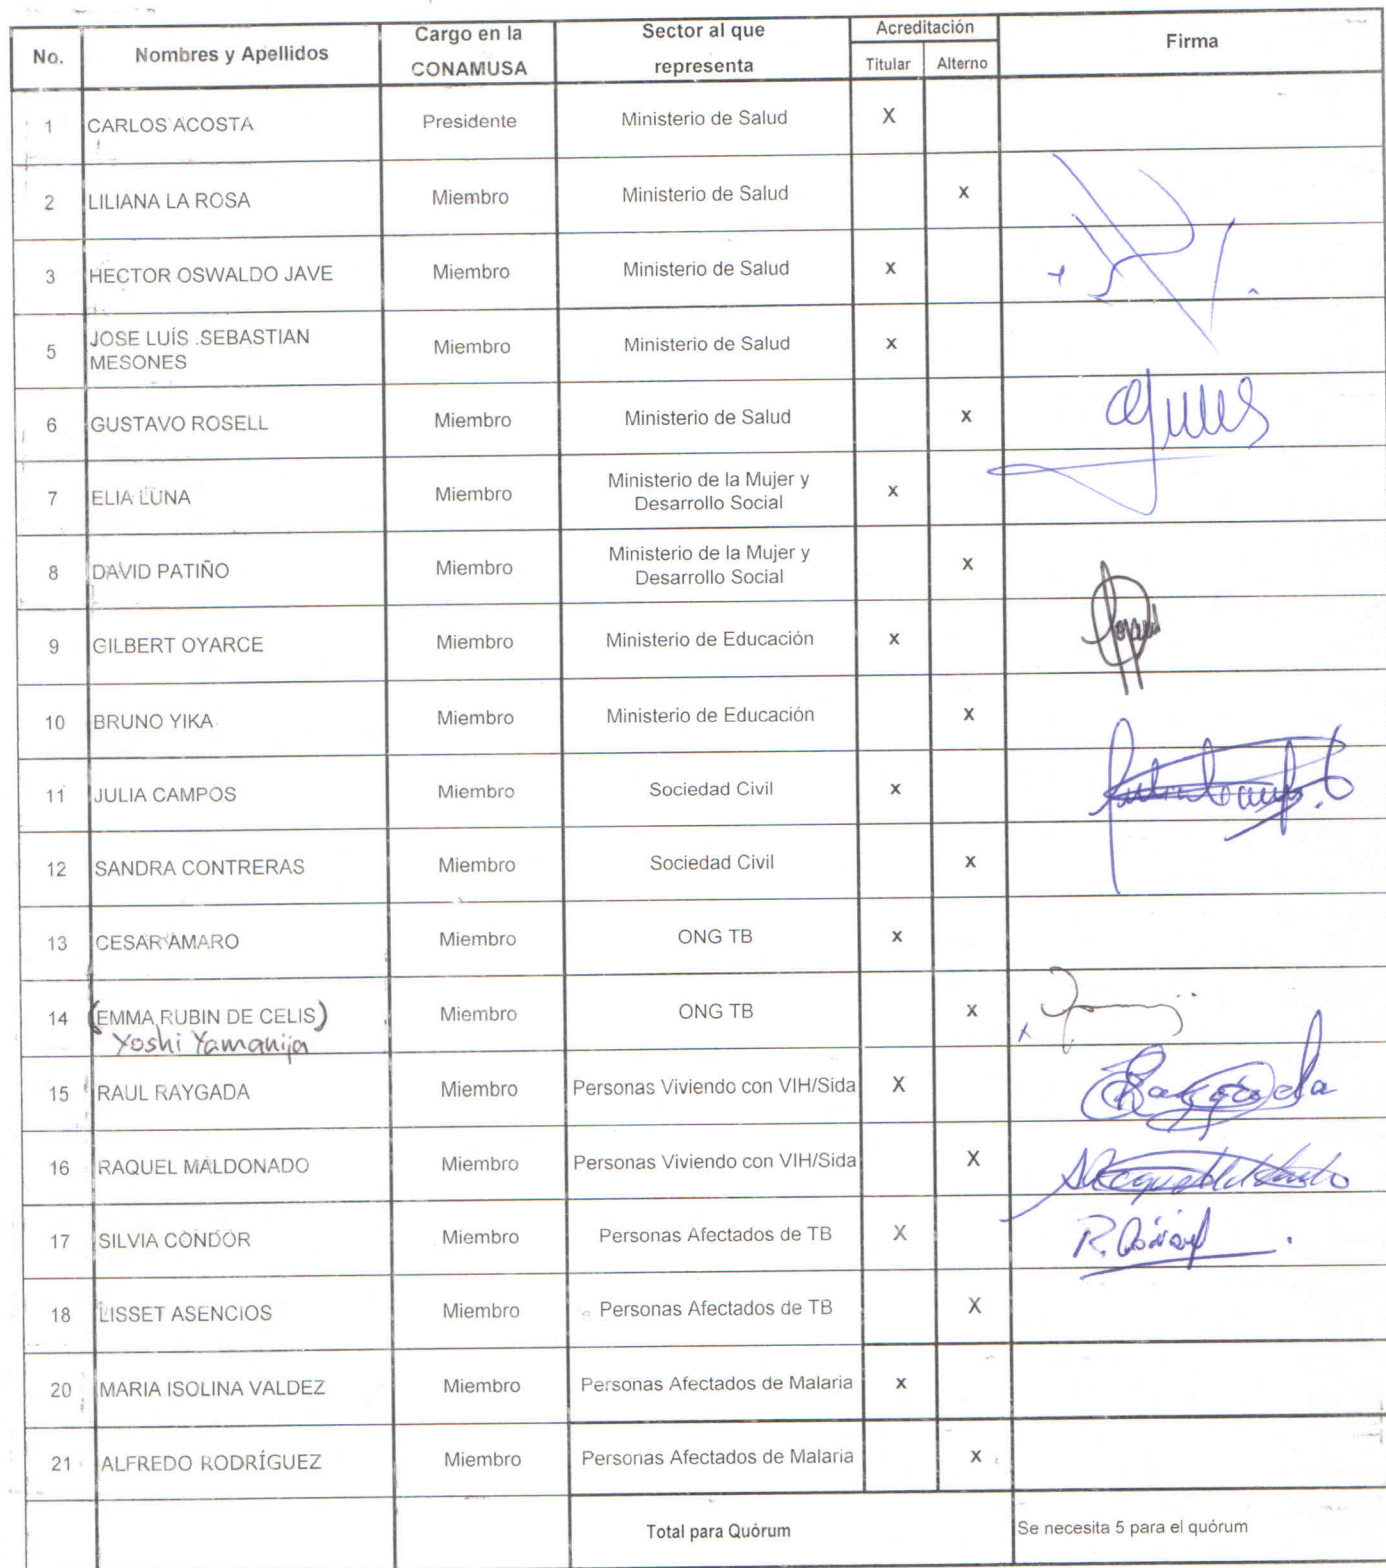 No. Nombres y Apellidos Cargo en la CONAMUSA Sector al que representa Acreditación Titular Alterno Firma
1 CARLOS ACOSTA Presidente Ministerio de Salud X
2 LILIANA LA ROSA Miembro Ministerio de Salud X
3 HECTOR OSWALDO JAVE Miembro Ministerio de Salud X
5 JOSE LUÍS .SEBASTIAN MESONES Miembro Ministerio de Salud X
6 GUSTAVO ROSELL Miembro Ministerio de Salud X
7 ELIA LUNA Miembro Ministerio de la Mujer y Desarrollo Social X
8 DAVID PATIÑO Miembro Ministerio de la Mujer y Desarrollo Social X
9 GILBERT OYARCE Miembro Ministerio de Educación X
10 BRUNO YIKA Miembro Ministerio de Educación X
11 JULIA CAMPOS Miembro Sociedad Civil X
12 SANDRA CONTRERAS Miembro Sociedad Civil X
13 CESAR AMARO Miembro ONG TB X
14 (EMMA RUBIN DE CELIS) Miembro ONG TB X
Yoshi Yamanija
15 RAUL RAYGADA Miembro Personas Viviendo con VIH/Sida X
16 RAQUEL MALDONADO Miembro Personas Viviendo con VIH/Sida X
17 SILVIA CONDOR Miembro Personas Afectados de TB X
18 LISSET ASENCIOS Miembro Personas Afectados de TB X
20 MARIA ISOLINA VALDEZ Miembro Personas Afectados de Malaria X
21 ALFREDO RODRÍGUEZ Miembro Personas Afectados de Malaria X
Total para Quórum Se necesita 5 para el quórum